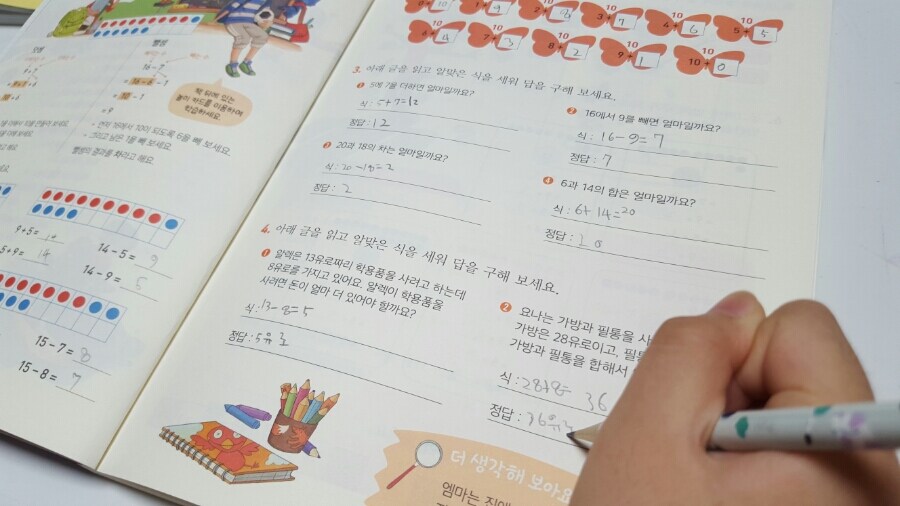 책 뒤에 있는
놀이 카드를 이용하여
학습하세요.
16 - 7
= 9
그리고 남은 1을 빼 보세요.
뺄셈의 결과를 차라고 해요.
9 + 5 =
5 + 9 = 14
14 - 5 = 9
14 - 9 = 5
15 - 7 = 8
15 - 8 = 7
10 10 10 10 10 10
1 + 9
3 + 7 4 + 6 5 + 5
10 10 10 10 10
6 + 4 7 + 3 8 + 2 9 + 1 10 + 0
3. 아래 글을 읽고 알맞은 식을 세워 답을 구해 보세요.
1 5에 7을 더하면 얼마일까요?
식 : 5+7=12
정답 : 12
2 16에서 9를 빼면 얼마일까요?
식 : 16-9=7
정답 : 7
3 20과 18의 차는 얼마일까요?
식 : 20-18=2
정답 : 2
4 6과 14의 합은 얼마일까요?
식 : 6+14=20
정답 : 20
4. 아래 글을 읽고 알맞은 식을 세워 답을 구해 보세요.
1 알렉은 13유로짜리 학용품을 사려고 하는데
8유로를 가지고 있어요. 알렉이 학용품을
사려면 돈이 얼마 더 있어야 할까요?
식 : 13-8=5
정답 : 5유로
2 요나는 가방과 필통을 사
가방은 28유로이고, 필통
가방과 필통을 합해서
식 : 28+8= 36
정답 : 36유로
더 생각해 보아요
엠마는